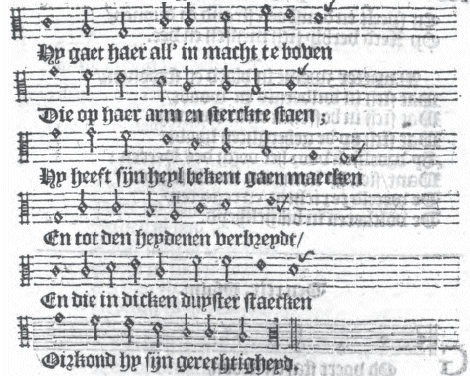 Hy gaet haer all' in macht te boven
Die op haer arm en sterckte staen ;
Hy heeft sijn heyl bekent gaen maecken
En tot den heydenen verbreydt/
En die in dicken duyster staecken
Oirkond hy sijn gerechtigheyd.